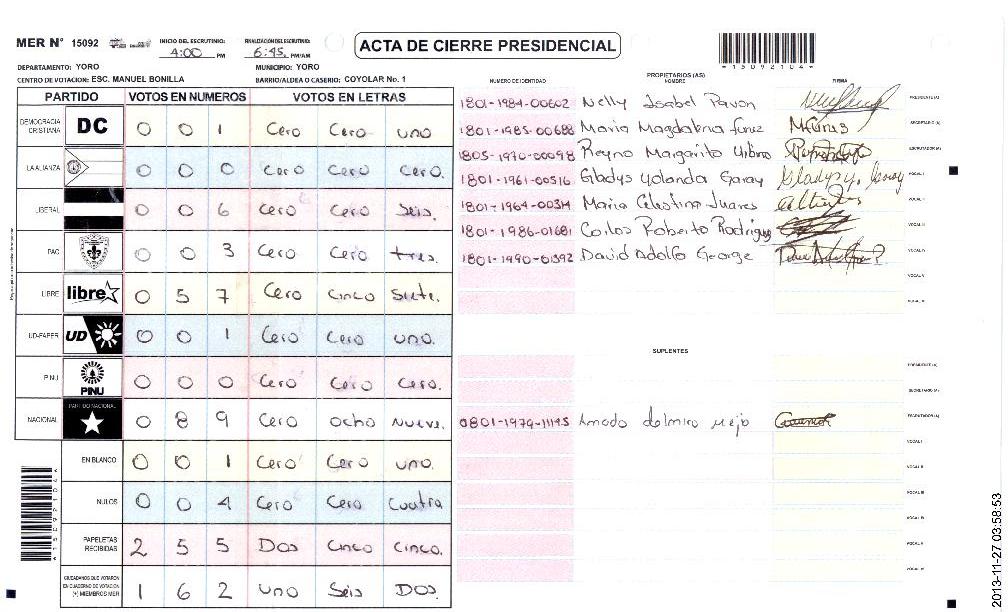 MER N° 15092 INICIO DEL ESCRUTINIO: 4:00 PM FINALIZACIÓN DEL ESCRUTINIO: 6:45 PM/AM ACTA DE CIERRE PRESIDENCIAL
DEPARTAMENTO: YORO MUNICIPIO: YORO *15092104*
CENTRO DE VOTACION: ESC. MANUEL BONILLA BARRIO/ALDEA O CASERIO: COYOLAR No. 1
NUMERO DE IDENTIDAD PROPIETARIOS (AS) NOMBRE FIRMA
PARTIDO VOTOS EN NUMEROS VOTOS EN LETRAS
DEMOCRACIA CRISTIANA DC 0 0 1 Cero Cero uno
LA ALIANZA 0 0 0 Cero Cero Cero.
LIBERAL 0 0 6 Cero Cero Seis.
PAC 0 0 3 Cero Cero tres.
LIBRE libre 0 5 7 Cero Cinco Siete.
UD-FAPER UD 0 0 1 Cero Cero uno.
PINU PINU 0 0 0 Cero Cero Cero.
NACIONAL PARTIDO NACIONAL 0 8 9 Cero ocho nueve.
EN BLANCO 0 0 1 Cero Cero uno.
NULOS 0 0 4 Cero Cero Cuatro
PAPELETAS RECIBIDAS 2 5 5 Dos Cinco Cinco.
CIUDADANOS QUE VOTARON EN CUADERNO DE VOTACION (+) MIEMBROS MER 1 6 2 uno Seis Dos
1801-1984-00602 Nelly Isabel Pavon PRESIDENTE (A)
1801-1985-00688 Maria Magdalena Funez SECRETARIO (A)
1805-1970-00098 Reyno Margarito ESCRUTADOR (A)
1801-1961-00516 Gladys Yolanda Garay Gladys Y. Garay VOCAL I
Maria Celestina Juares VOCAL II
1801-1986-01681 Carlos Roberto Rodriguez VOCAL III
1801-1990-01392 David Adolfo George VOCAL IV
VOCAL V
VOCAL VI
SUPLENTES
PRESIDENTE (A)
SECRETARIO (A)
Amado dolmiro mejo ESCRUTADOR (A)
VOCAL I
VOCAL II
VOCAL III
VOCAL IV
VOCAL V
VOCAL VI
*15092104*
2013-11-27 03:58:53